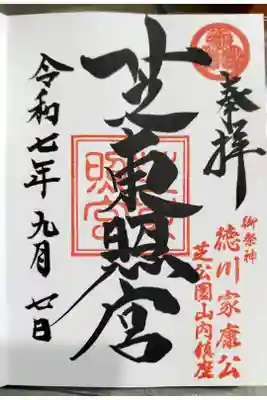 奉拝
御祭神
徳川家康公
芝公園山内鎮座
芝東照宮
令和七年九月七日